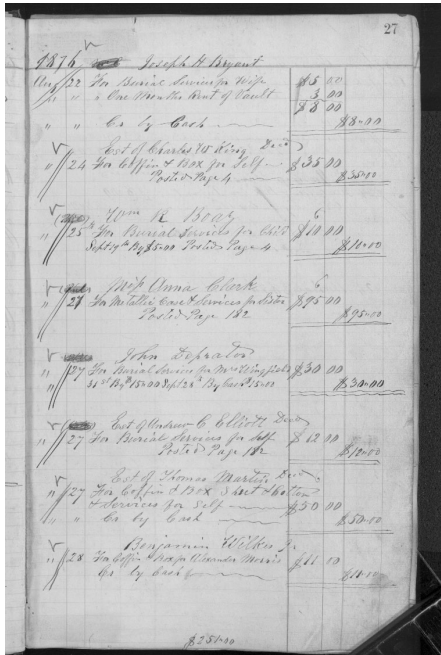 27
1876 Joseph H Bryant
Aug 22 For Burial Services for Wife $5 00
" " " One Months Rent of Vault 3 00
$8 00
" " Cr by Cash $8.00
Est of Charles W King Decd
" 24 For Coffin & Box for Self $35 00
Posted Page 4 $35.00
Wm R Boaz
" 25 For Burial Services for Child $10 00
Sept 19th By $5.00 Posted Page 4 $10.00
Miss Anna Clark
" 27 For Metallic Case & Services for Sister $95 00
Posted Page 182 $95.00
John
" 27 For Burial Services for Mrs Wingfield $30 00
31st By $15.00 Sept 28th By Cash $15.00 $30.00
Est of Andrew C Elliott Decd
" 27 For Burial Services for Self $12 00
Posted Page 182 $12.00
Est of Thomas Martin Decd
" 27 For Coffin & Box
& Services for Self $50 00
" " Cr by Cash $50.00
Benjamin Wilkes Jr
" 28 For Coffin & Box for Alexander Morris $11 00
Cr by Cash $11.00
$251.00